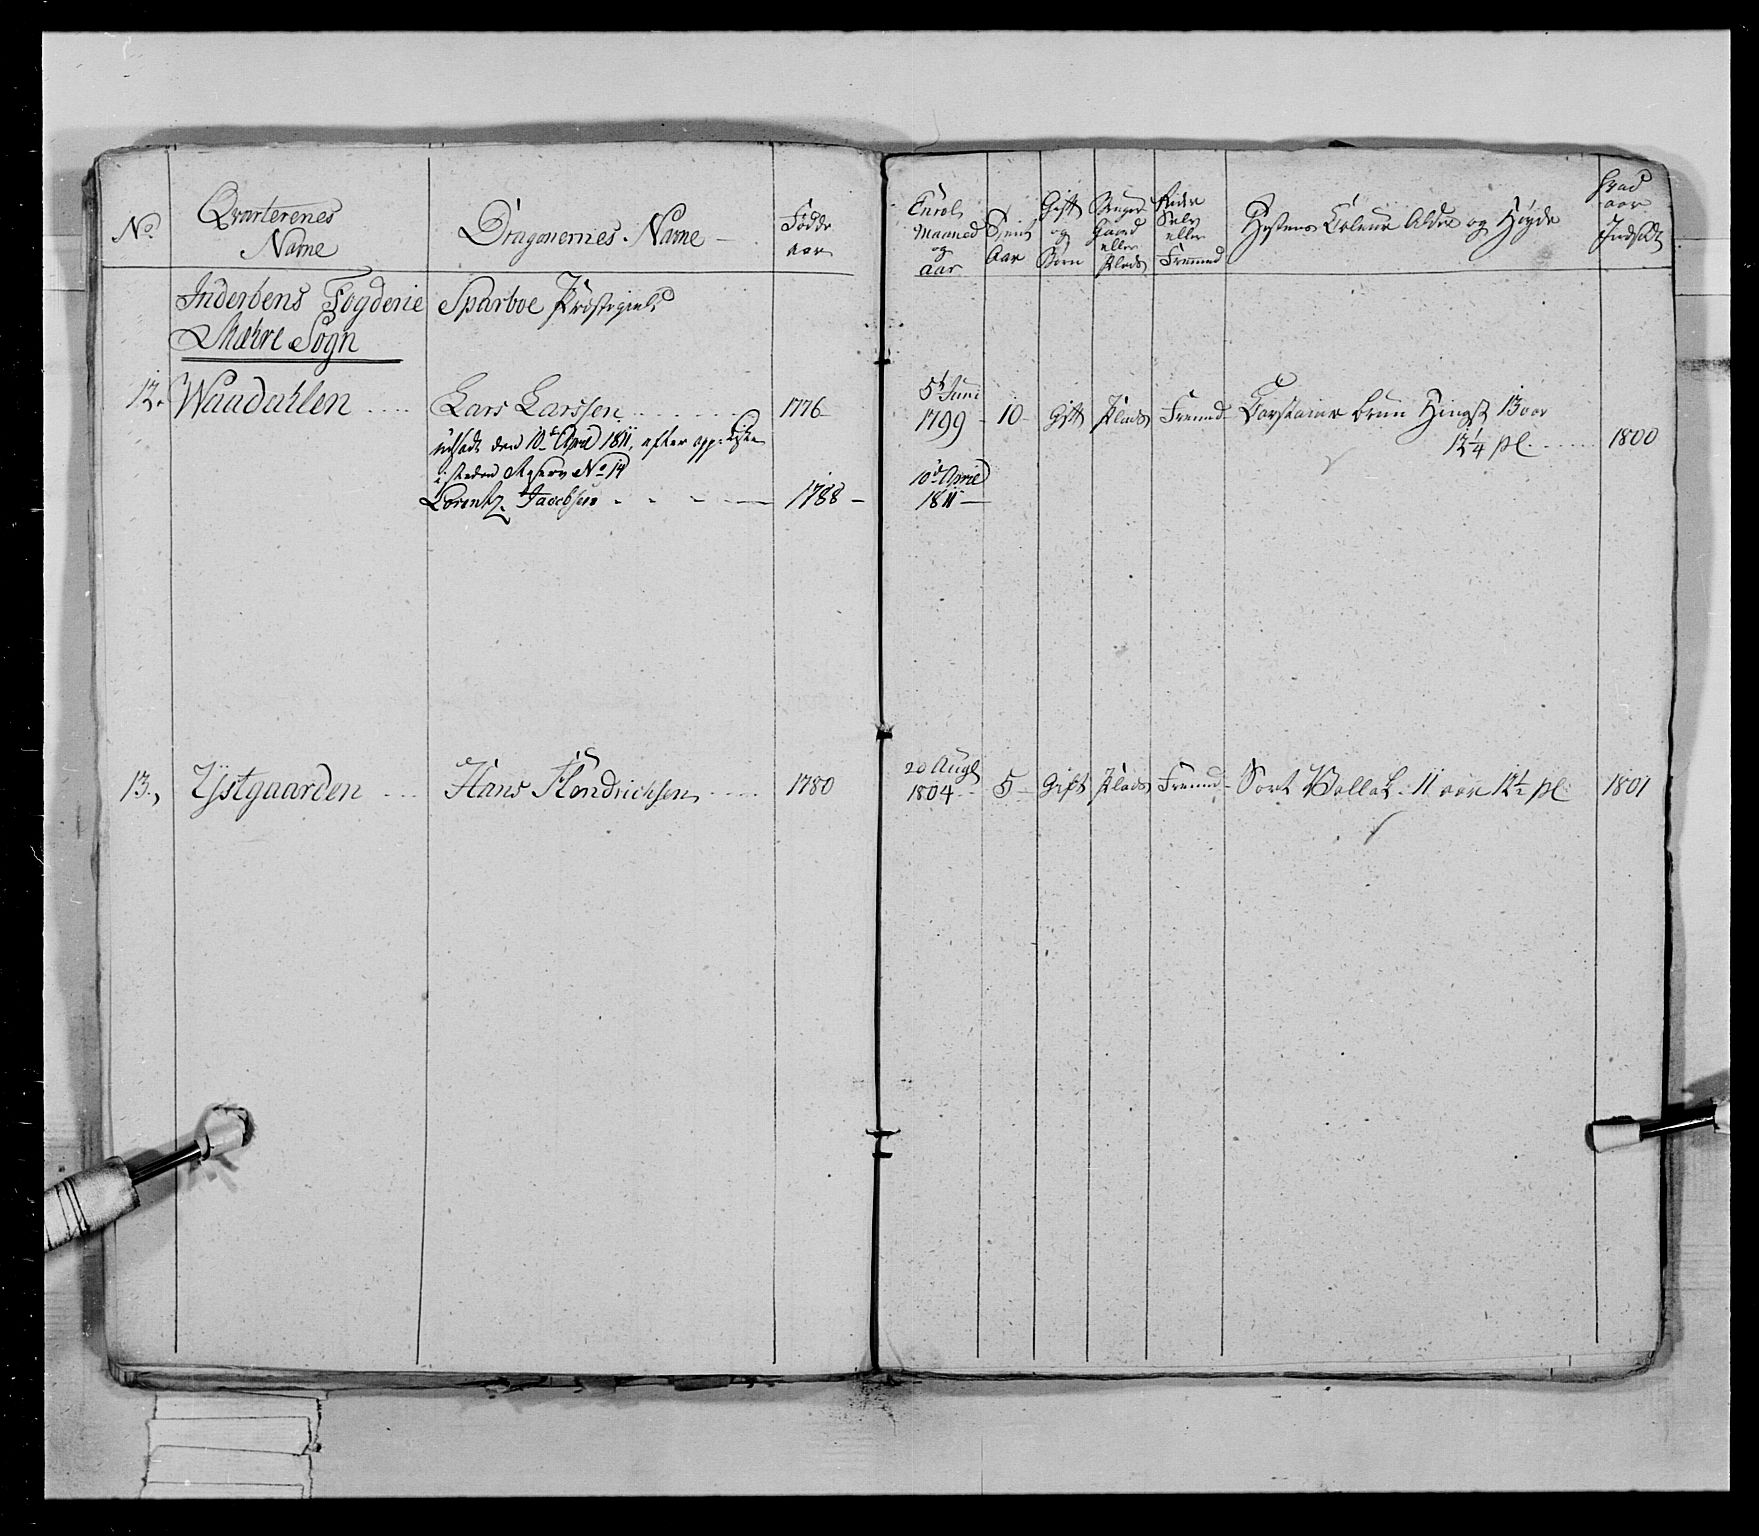 No.
Qvarterenes
Name
Dragonernes Name
Fødde
aar
Enrol.
Maaned
og
aar
Tienist
Aar
Gift
og
Børn
Bruger
Gaard
eller
Plads
Rider
Selv
eller
Fremmed
Hestens Coleur Alder og Høyde
hvad
aar
Indsadt
Inderöens Fogderie Sparboe Præstegield
Mæhre Sogn
12. Waadahlen .... Lars Larssen ...... 1776
5te Juni
1799 - 10 - Gift Plads Fremmed Borstaier brun Hingst 13 aar
12¼ pl ..... 1800
udsadt den 10de April 1811, efter
i steden Reserv No 14
Lorentz Jacobsen - - - - 1788 -
10de April
1811 -
13., Ystgaarden ... Hans Hendrichsen .... 1780
20 Augt
1804 - 5 - Gift Plads Fremmed - Sort Vallak - 11 aar 12½ pl 1801